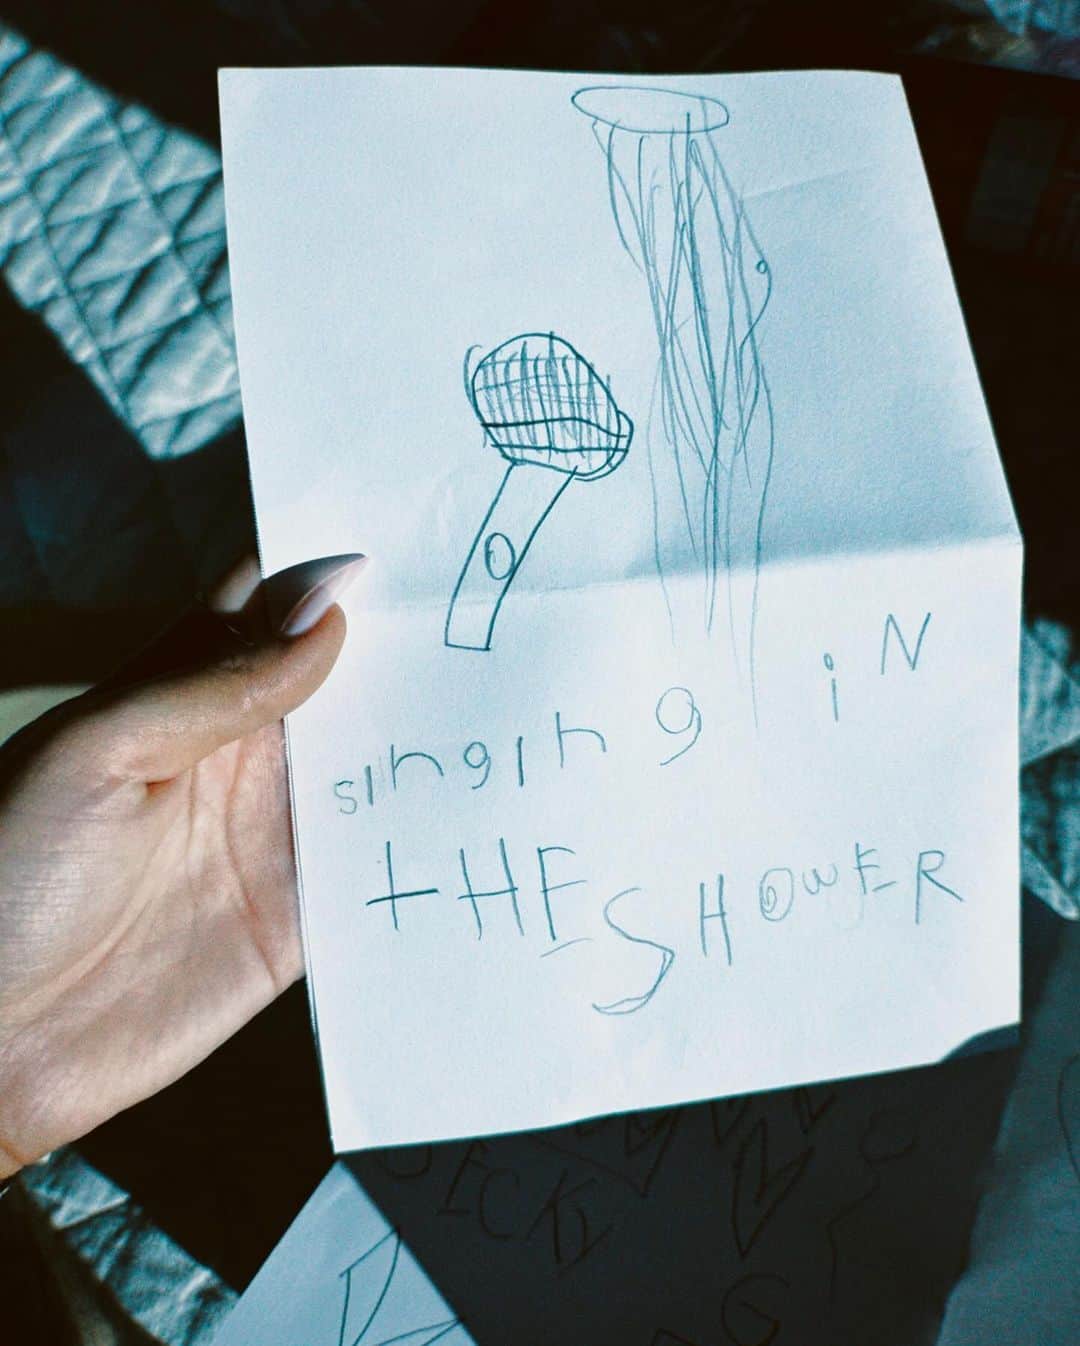 singing iN
tHE SHOWER